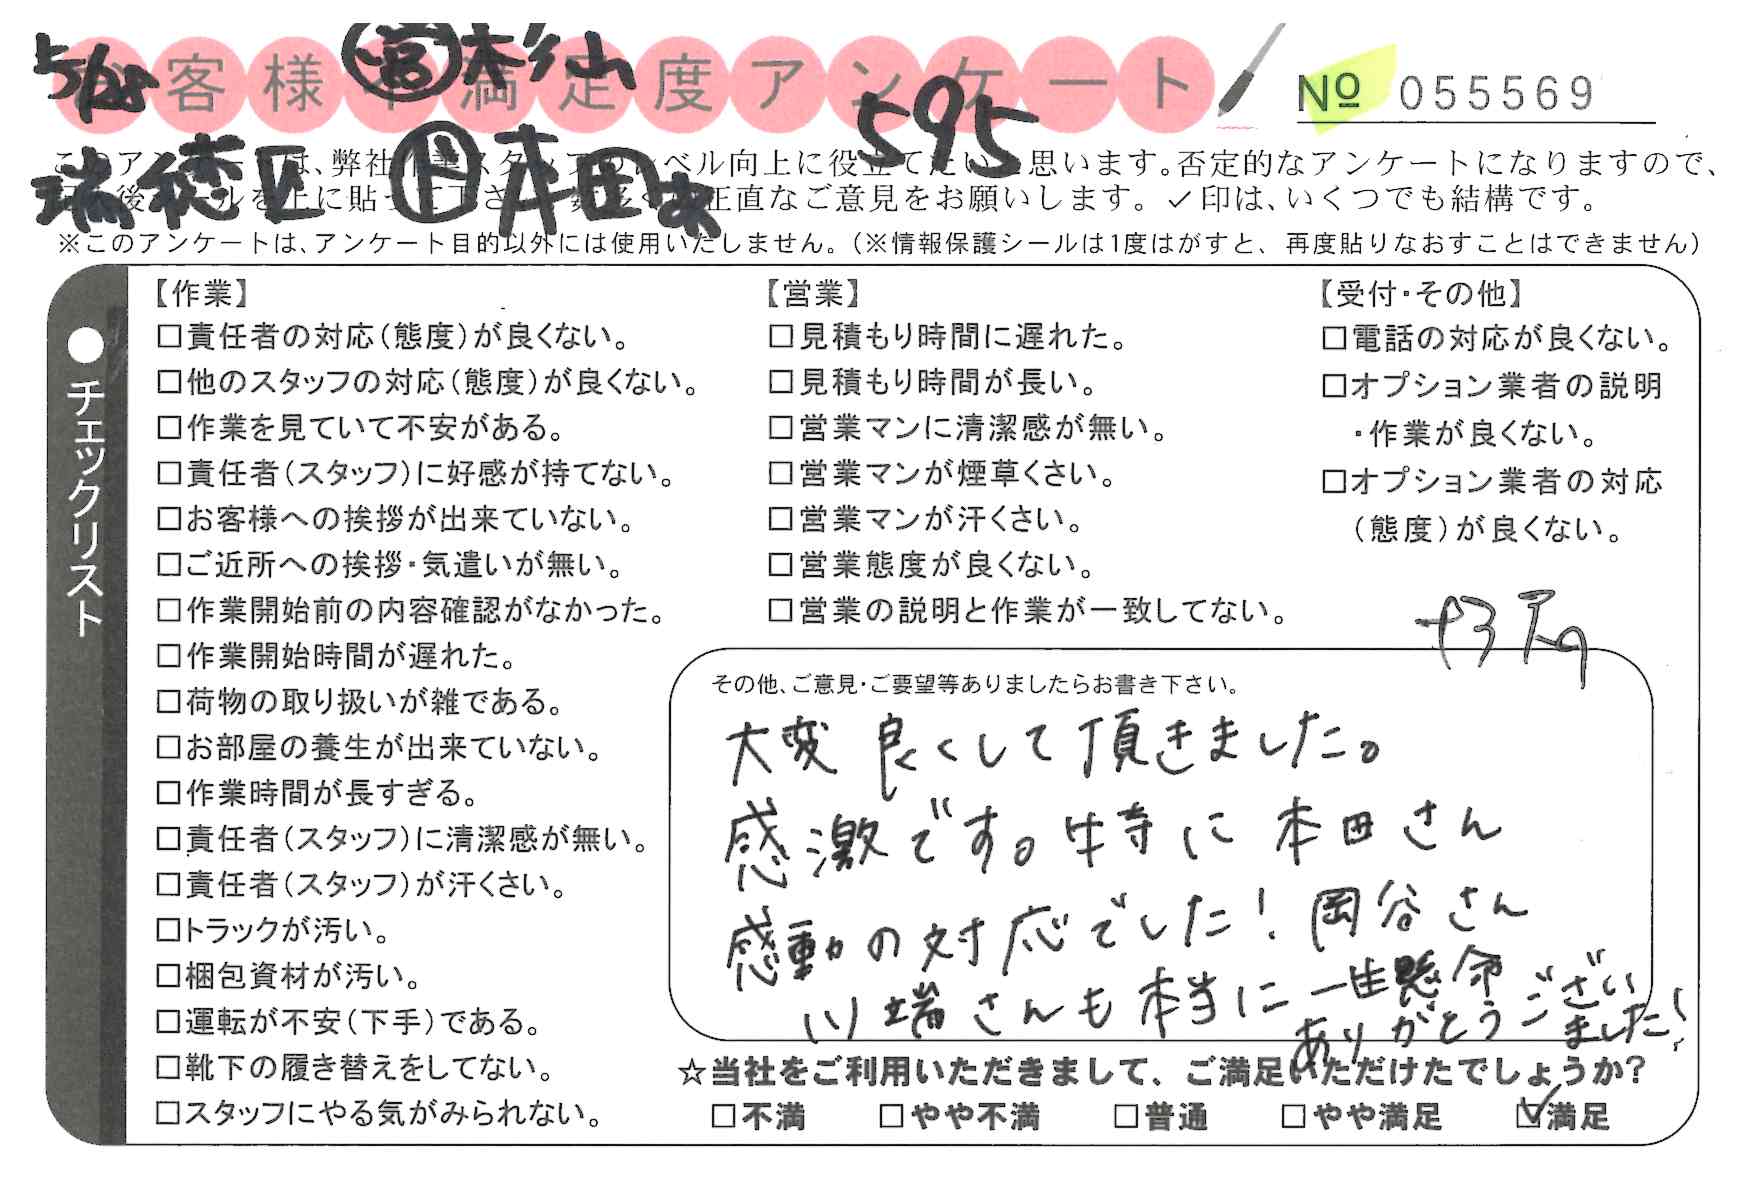 5/28 営 杉山
お客様不満足度アンケート
595
№ 055569
瑞穂区 ド 本田
このアンケートは、弊社作業スタッフのレベル向上に役立てたいと思います。否定的なアンケートになりますので、
後 ルを上に貼って下さ 正直なご意見をお願いします。✓印は、いくつでも結構です。
※このアンケートは、アンケート目的以外には使用いたしません。(※情報保護シールは1度はがすと、再度貼りなおすことはできません)
●チェックリスト
【作業】
□責任者の対応(態度)が良くない。
□他のスタッフの対応(態度)が良くない。
□作業を見ていて不安がある。
□責任者(スタッフ)に好感が持てない。
□お客様への挨拶が出来ていない。
□ご近所への挨拶・気遣いが無い。
□作業開始前の内容確認がなかった。
□作業開始時間が遅れた。
□荷物の取り扱いが雑である。
□お部屋の養生が出来ていない。
□作業時間が長すぎる。
□責任者(スタッフ)に清潔感が無い。
□責任者(スタッフ)が汗くさい。
□トラックが汚い。
□梱包資材が汚い。
□運転が不安(下手)である。
□靴下の履き替えをしてない。
□スタッフにやる気がみられない。
【営業】
□見積もり時間に遅れた。
□見積もり時間が長い。
□営業マンに清潔感が無い。
□営業マンが煙草くさい。
□営業マンが汗くさい。
□営業態度が良くない。
□営業の説明と作業が一致してない。
【受付・その他】
□電話の対応が良くない。
□オプション業者の説明
・作業が良くない。
□オプション業者の対応
(態度)が良くない。
その他、ご意見・ご要望等ありましたらお書き下さい。
大変良くして頂きました。
感激です。特に本田さん
感動の対応でした!岡谷さん
川端さんも本当に一生懸命
ありがとうござい
ました!
☆当社をご利用いただきまして、ご満足いただけたでしょうか?
□不満 □やや不満 □普通 □やや満足 ☑満足